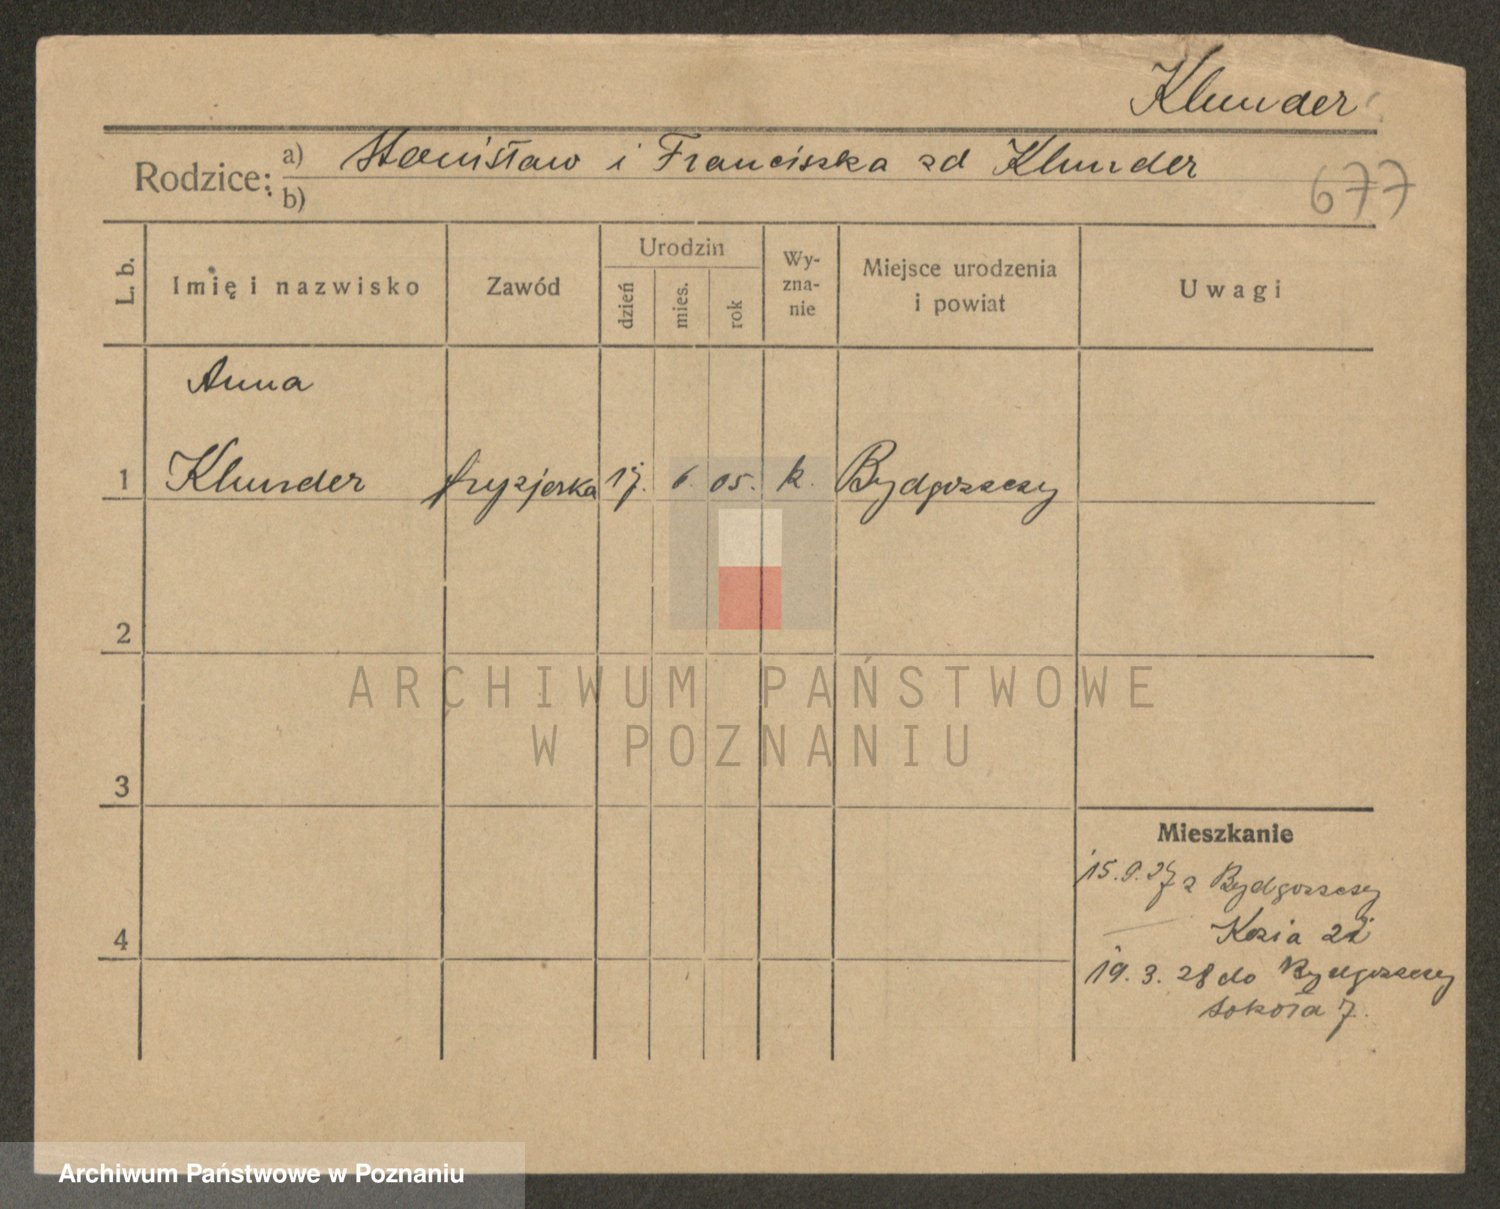 Klunder
Rodzice: a) Stanisław i Franciszka zd Klunder
b)
677
L. b.
Imię i nazwisko
Zawód
Urodzin
dzień
mies.
rok
Wy-
zna-
nie
Miejsce urodzenia
i powiat
Uwagi
Anna
1 Klunder fryzjerka 17. 6. 05. k. Bydgoszczy
2
3
4
Mieszkanie
15.9.27 z Bydgoszczy
Kozia 22
19. 3. 28 do Bydgoszczy
Sokoła 7.
ARCHIWUM PAŃSTWOWE
W POZNANIU
Archiwum Państwowe w Poznaniu